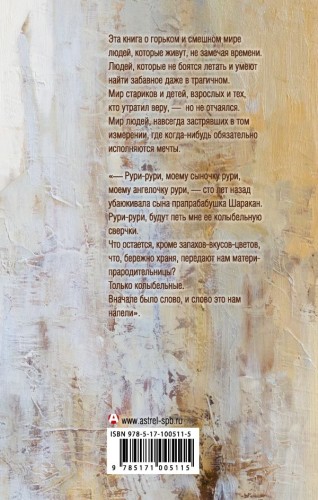 Эта книга о горьком и смешном мире
людей, которые живут, не замечая времени.
Людей, которые не боятся летать и умеют
найти забавное даже в трагичном.
Мир стариков и детей, взрослых и тех,
кто утратил веру, — но не отчаялся.
Мир людей, навсегда застрявших в том
измерении, где когда-нибудь обязательно
исполняются мечты.
«— Рури-рури, моему сыночку рури,
моему ангелочку рури, — сто лет назад
убаюкивала сына прапрабабушка Шаракан.
Рури-рури, будут петь мне ее колыбельную
сверчки.
Что остается, кроме запахов-вкусов-цветов,
что, бережно храня, передают нам матери-
прародительницы?
Только колыбельные.
Вначале было слово, и слово это нам
напели».
www.astrel-spb.ru
ISBN 978-5-17-100511-5
9 785171 005115